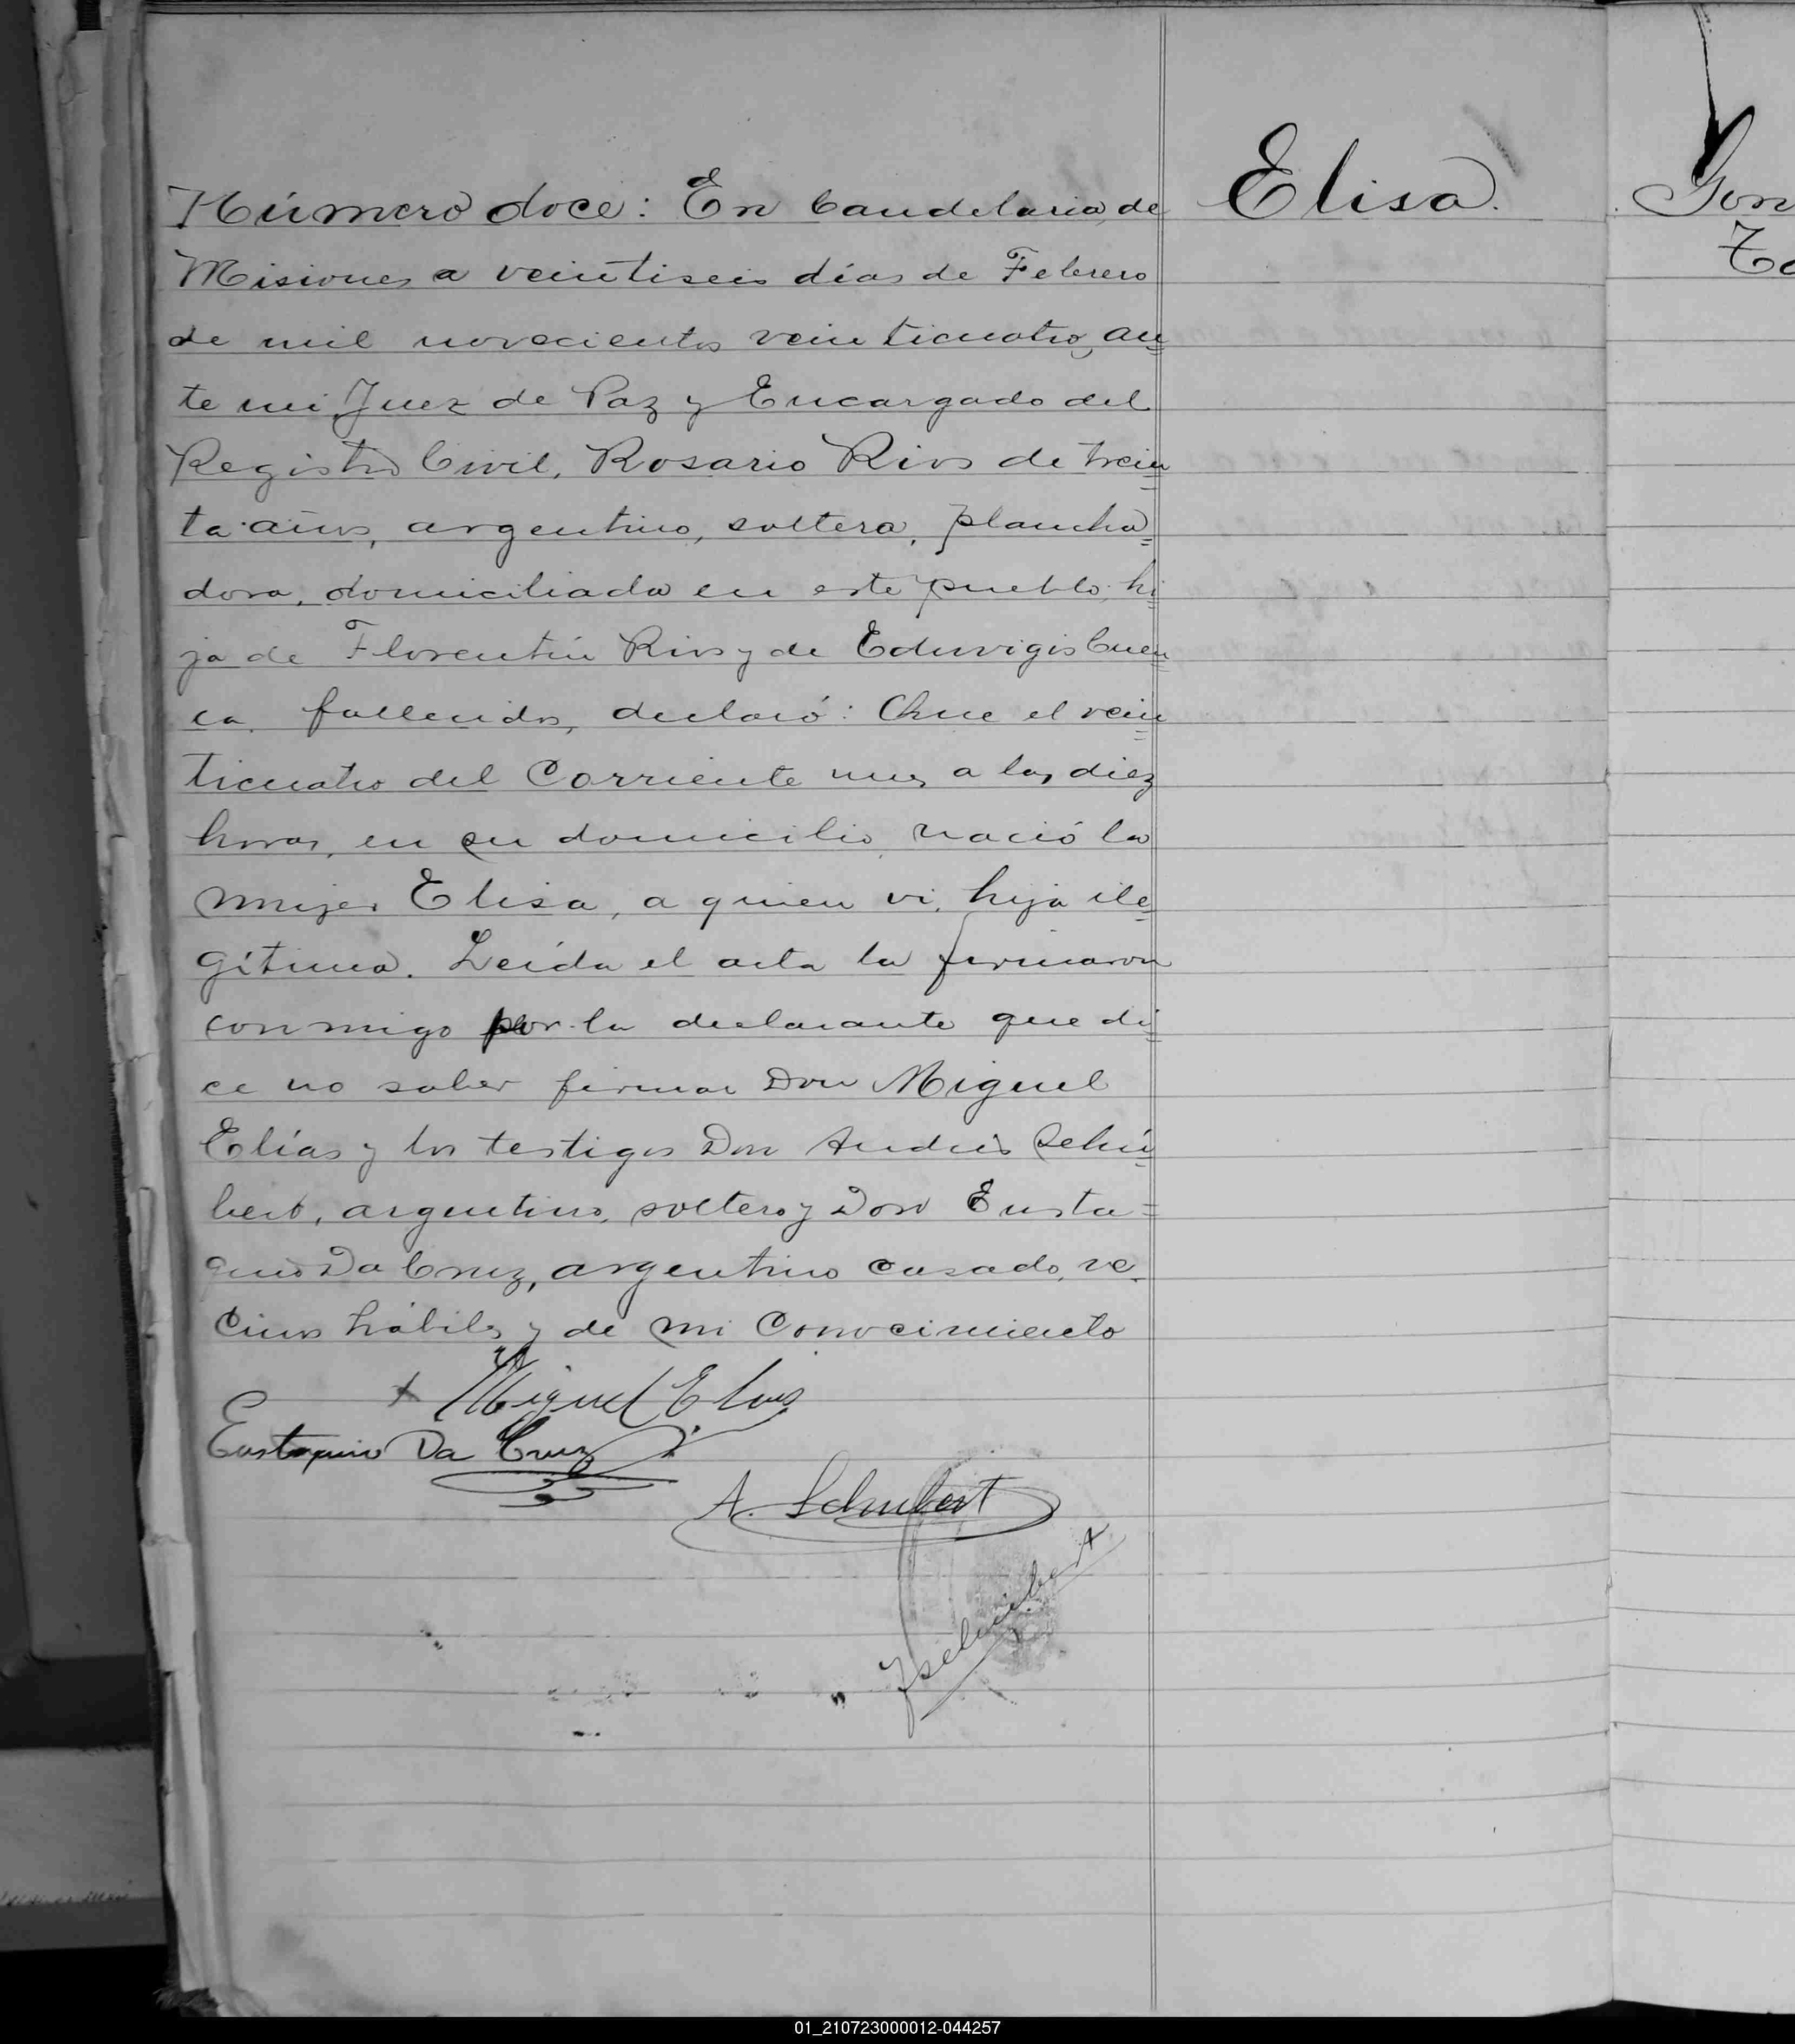 Número doce: En Candelaria, de
Misiones a veintiseis días de Febrero
de mil novecientos veinticuatro, an=
te mi Juez de Paz y Encargado del
Registro Civil, Rosario Rios de trein=
ta años, argentino, soltera, plancha=
dora, domiciliada en este pueblo, hi=
ja de Florentín Rios y de Eduvigis Cuen=
ca, fallecidos, declaró: Que el vein=
ticuatro del Corriente mes a las diez
horas, en su domicilio nació la
mujer Elisa, a quien vi, hija ile=
gítima. Leída el acta la firmaron
conmigo por la declarante que di=
ce no saber firmar Don Miguel
Elías y los testigos Don Andrés Schú=
bert, argentino, soltero y Don Eusta=
quio Da Cruz, argentino casado, ve=
cinos hábiles y de mi Conocimiento
Elisa.
+ Miguel Elias
Eustaquio Da Cruz
A. Schubert
Gon
01_210723000012-044257